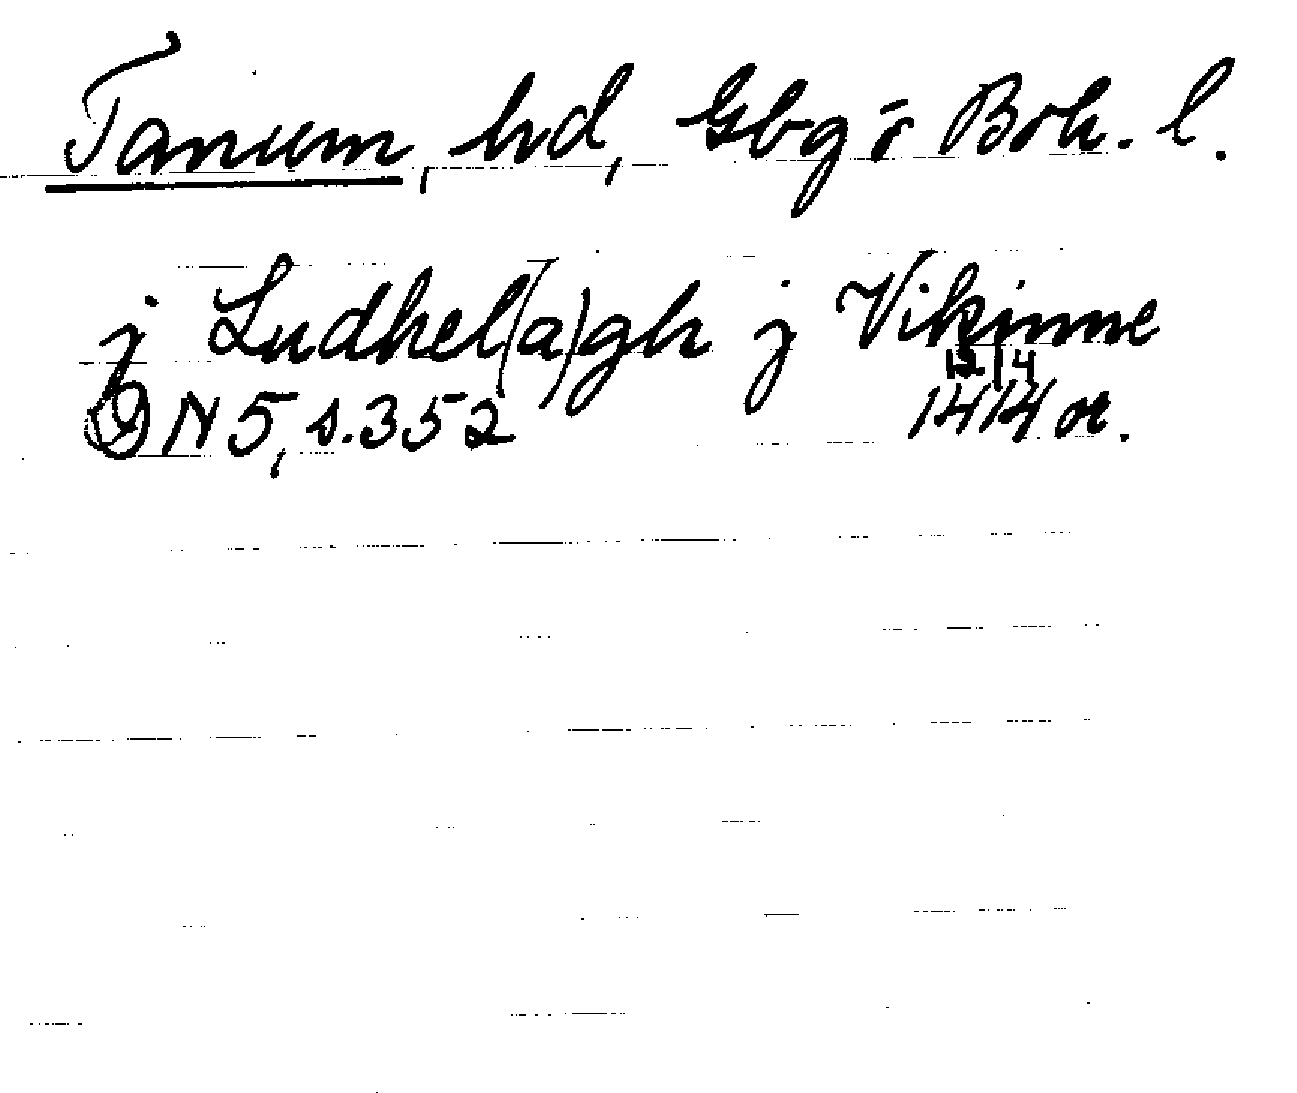 Tanum, hd, Gbg o Boh. l.
j Ludhel(a)gh j Vikinne
12/4
DN 5, s. 352 1414 or.